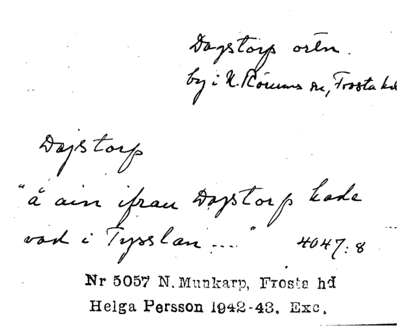 Dagstorp ortn.
by i N. Rörums sn, Frosta hd
Dajstorp
"å ain ifrau Dajstorp hade
vad i Tysslan..." 4047:8
Nr 5057 N. Munkarp, Frosta hd
Helga Persson 1942-43. Exc.